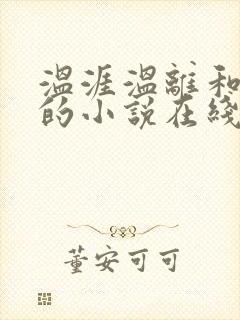 温涯温離和
的小說在綫
董安可可